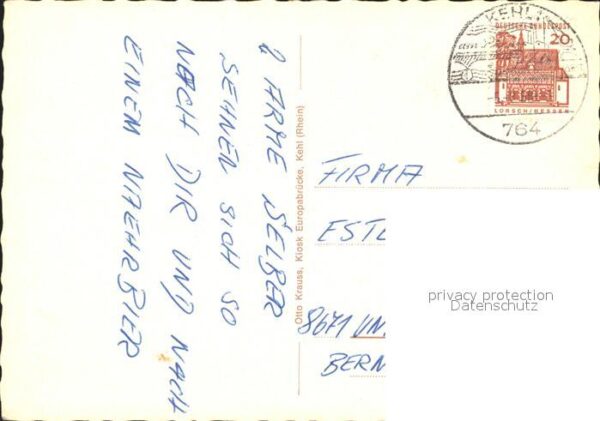 2 ARME SELBER
SEHNEN SICH SO
NACH DIR UND NACH
EINEM NAEHRBIER
Otto Krauss, Kiosk Europabrücke, Kehl (Rhein)
KEHL
DEUTSCHE BUNDESPOST
20
LORSCH/HESSEN
764
FIRMA
ESTL
8671 UN
BERN
privacy protection
Datenschutz